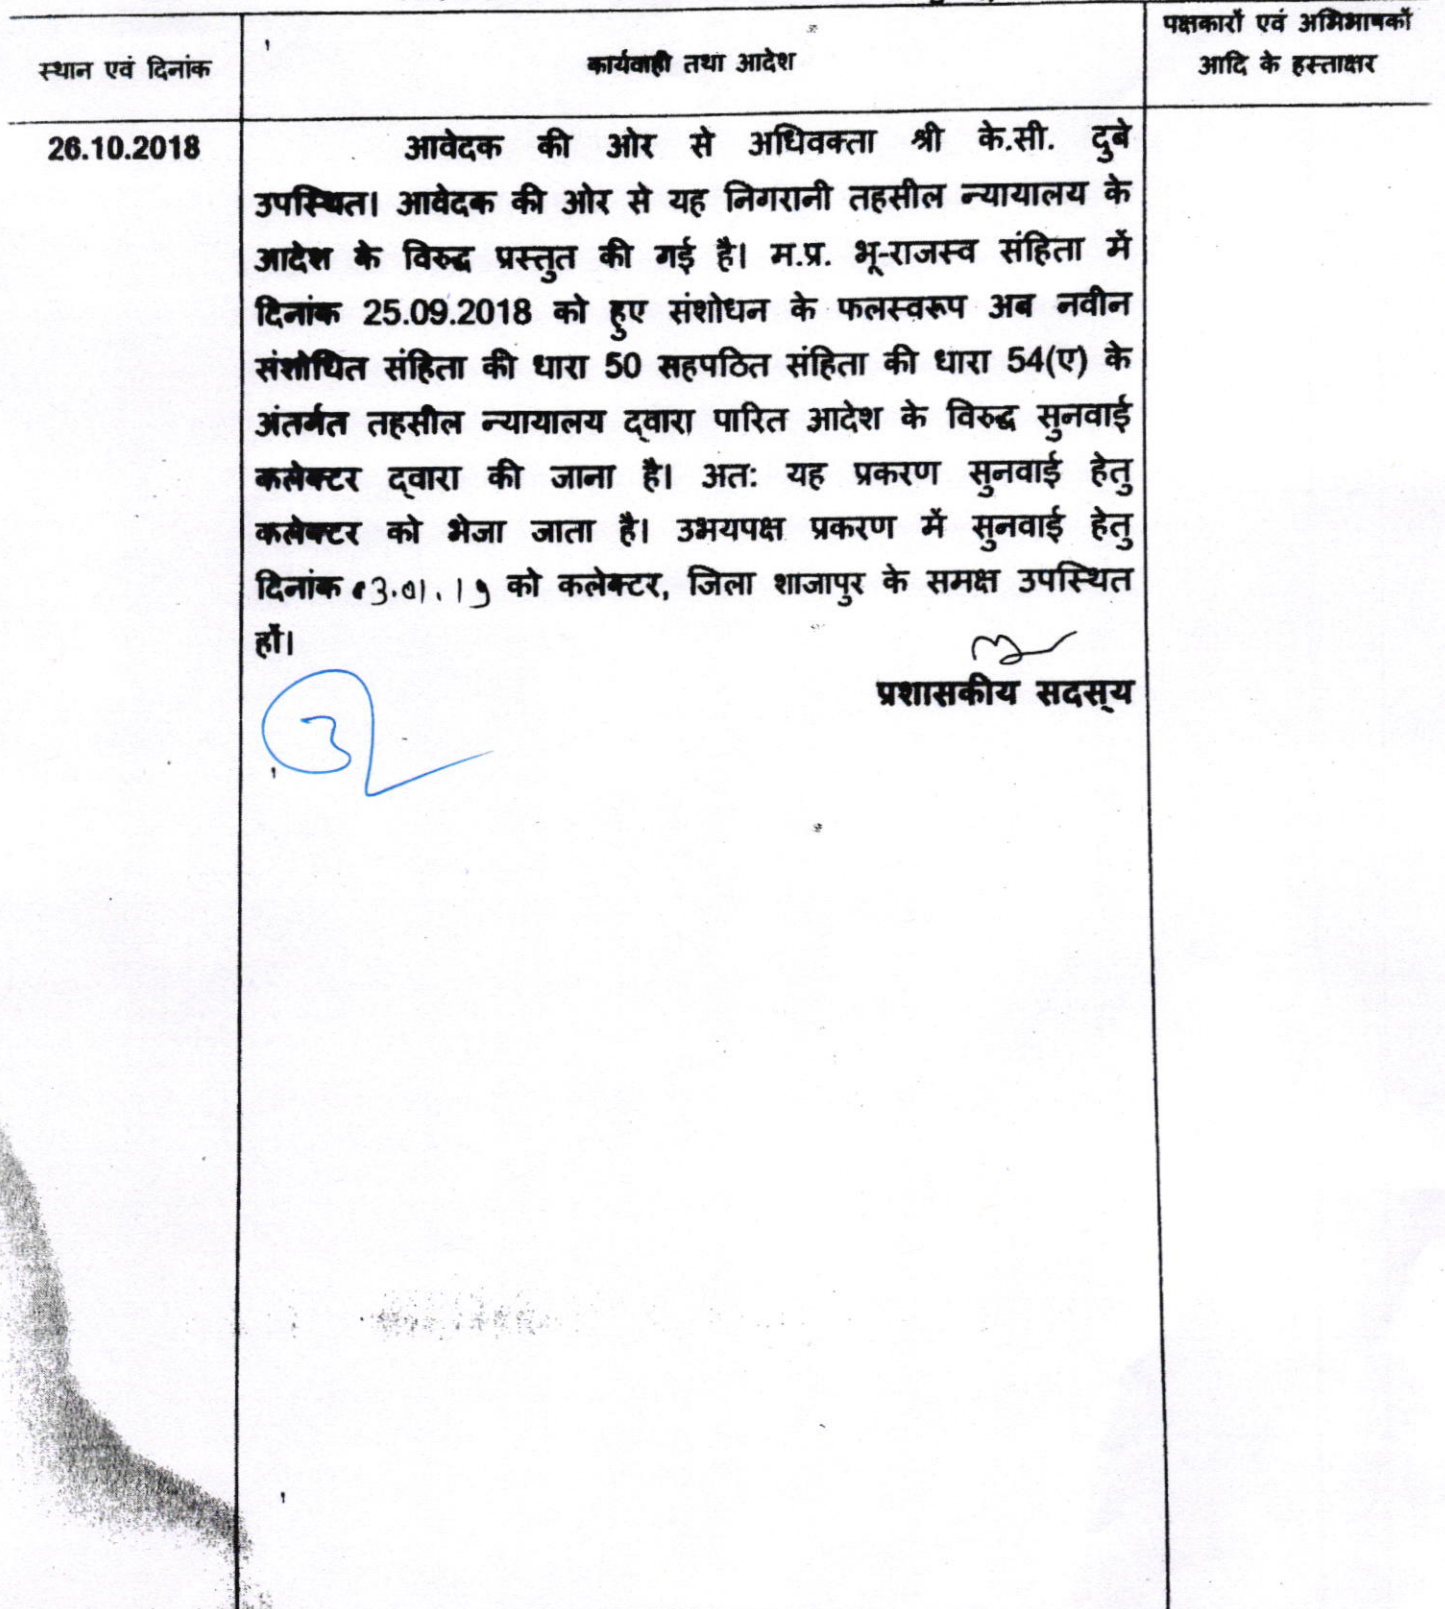 स्थान एवं दिनांक
कार्यवाही तथा आदेश
पक्षकारों एवं अभिभाषकों
आदि के हस्ताक्षर
26.10.2018
आवेदक की ओर से अधिवक्ता श्री के.सी. दुबे
उपस्थित। आवेदक की ओर से यह निगरानी तहसील न्यायालय के
आदेश के विरुद्ध प्रस्तुत की गई है। म.प्र. भू-राजस्व संहिता में
दिनांक 25.09.2018 को हुए संशोधन के फलस्वरूप अब नवीन
संशोधित संहिता की धारा 50 सहपठित संहिता की धारा 54(ए) के
अंतर्गत तहसील न्यायालय द्वारा पारित आदेश के विरुद्ध सुनवाई
कलेक्टर द्वारा की जाना है। अतः यह प्रकरण सुनवाई हेतु
कलेक्टर को भेजा जाता है। उभयपक्ष प्रकरण में सुनवाई हेतु
दिनांक 03.01.19 को कलेक्टर, जिला शाजापुर के समक्ष उपस्थित
हों।
प्रशासकीय सदस्य